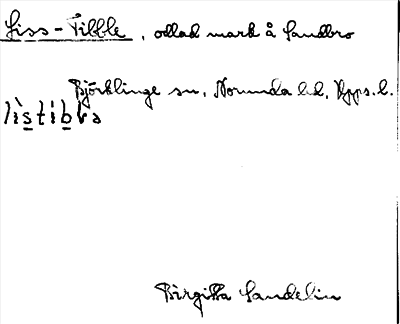 Liss-Tibble, odlad mark å Sandbro
Björklinge sn, Norunda hd, Upps. l.
lìstíbḷə
Birgitta Sandelin